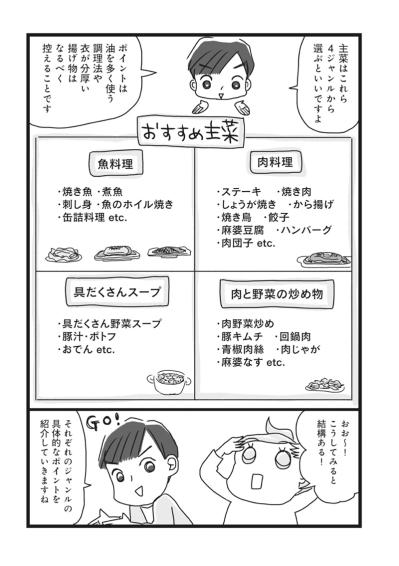 主菜はこれら
4ジャンルから
選ぶといいですよ
ポイントは
油を多く使う
調理法や
衣が分厚い
揚げ物は
なるべく
控えることです
おすすめ主菜
魚料理
・焼き魚 ・煮魚
・刺し身 ・魚のホイル焼き
・缶詰料理 etc.
肉料理
・ステーキ ・焼き肉
・しょうが焼き ・から揚げ
・焼き鳥 ・餃子
・麻婆豆腐 ・ハンバーグ
・肉団子 etc.
具だくさんスープ
・具だくさん野菜スープ
・豚汁・ポトフ
・おでん etc.
肉と野菜の炒め物
・肉野菜炒め
・豚キムチ ・回鍋肉
・青椒肉絲 ・肉じゃが
・麻婆なす etc.
おお〜!
こうしてみると
結構ある!
GO!
それぞれのジャンルの
具体的なポイントを
紹介していきますね